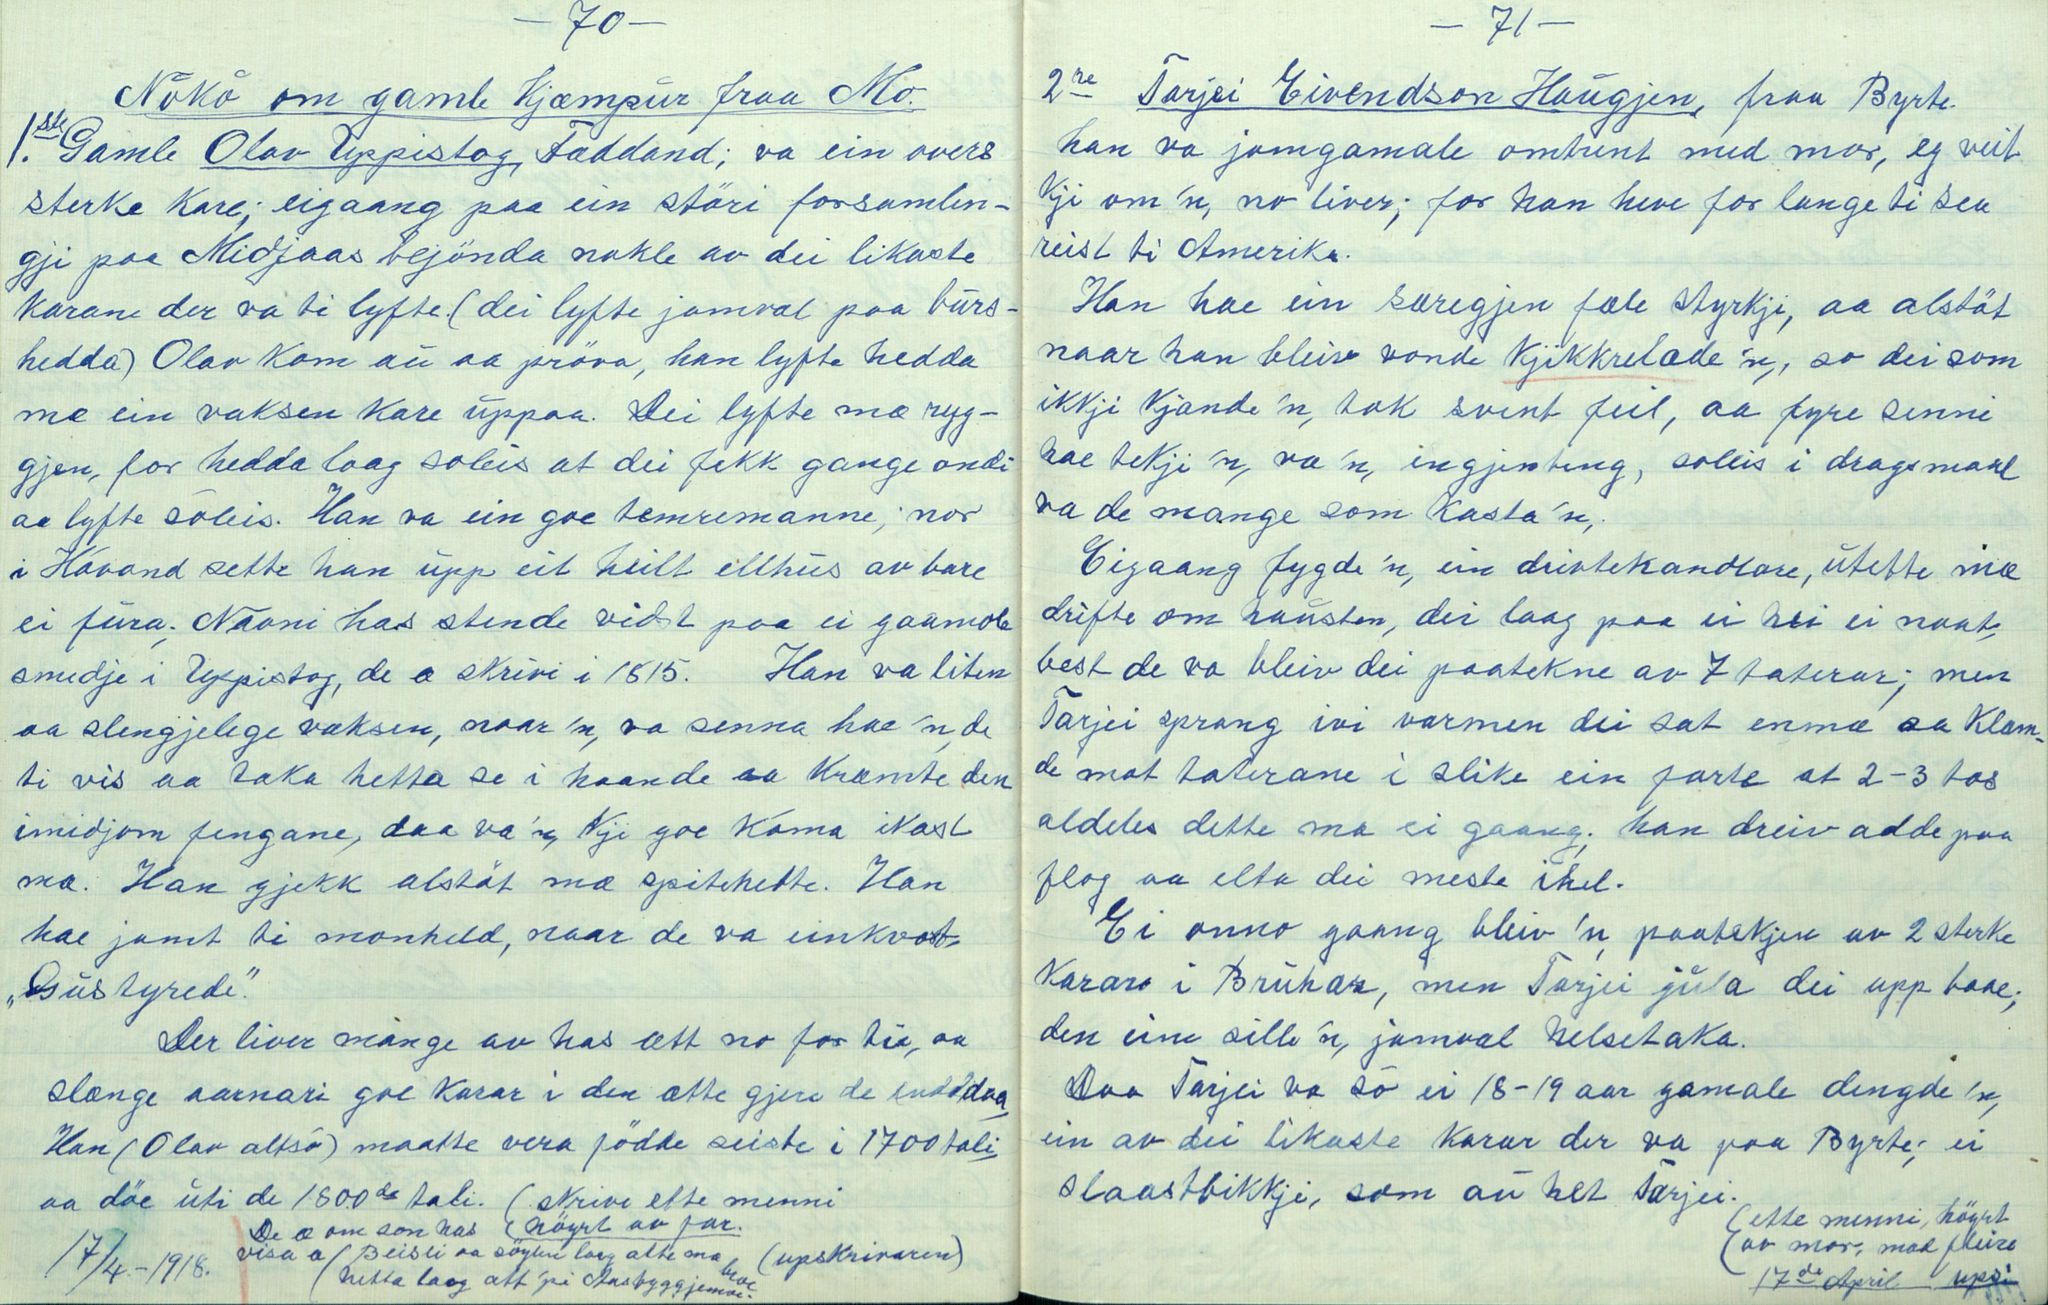 — 70 —
Nökö om gamle Kjæmpur fraa Mo.
1.ste Gamle Olav Uppistog, Fæddand; va ein overs
sterke Kare; eigaang paa ein störi forsamlin-
gji paa Midjaas bejönda nokle av dei likaste
Karane der va ti lyfte. (dei lyfte jamval paa burs-
hedda) Olav Kom au aa pröva, han lyfte hedda
mæ ein vaksen Kare uppaa. Dei lyfte mæ ryg-
gjen, for hedda laag soleis at dei fekk gange ondi
aa lyfte soleis. Han va ein goe temremanne; nor
i Havand sette han upp eit heilt ellhus av bare
ei fura; Navni has stende vidst paa ei gaamole
smedje i Uppistog, de æ skrivi i 1815. Han va liten
aa slengjelege vaksen, naar'n, va senna hae'n, de
ti vis aa taka hetta se i haande aa Kræmte den
imidjom fengane, daa va'n, Kji goe Koma ikast
mæ. Han gjekk alstöt mæ spitehette. Han
hae jamt ti monheld, naar de va einkvart,
„Gustyrede".
Der liver mange av has ætt no for tia, aa
slænge aarnari goe Karar i den ætte gjere de endd daa,
Han (Olav altsö) maatte vera födde seiste i 1700 tali,
aa döe uti de 1800de tali. (Skrive ette menni
höyrt av far.
De æ om son has
visa æ (Beisli aa söylen laag atte mæ (upskrivaren)
hetta laag att 'pi Aasbyggjemoe.
17/4.-1918.
— 71 —
2re Tarjei Eivendson Haugjen, fraa Byrte.
han va jamgamale omtrent med mor, eg veit
Kji om'n, no liver; for han heve for lange ti sea
reist ti Amerika.
Han hae ein særegjen fæle styrkji, aa alstöt
naar han bleiv vonde Kjikkrelæde'n,, so dei som
ikkji Kjande'n, tok svent feil, aa fyre senni
hae tekji'n, va'n, ingjenting, soleis i dragsmaal
va de mange som Kasta'n,.
Eigaang fygde'n, ein drivtekandlare, utette mæ
drifte om hausten, dei laag paa ei hei ei naat,
best de va bleiv dei paatekne av 7 taterar; men
Tarjei sprang ivi varmen dei sat enmæ aa Klem-
de mot taterane i slike ein farte at 2-3 tos
aldeles dette mæ ei gaang; han dreiv adde paa
flog aa elta dei meste ihel.
Ei onno gaang bleiv'n, paatekjen av 2 sterke
Karar i Bruhar, men Tarjei jula dei upp baae;
den eine sille'n, jamval helsetaka.
Daa Tarjei va so ei 18-19 aar gamale dengde'n,
ein av dei likaste Karar der va paa Byrte; ei
slaastbikkji, som au het Tarjei.
(ette menni, höyrt
(av mor, mad fleire
17de April upsi